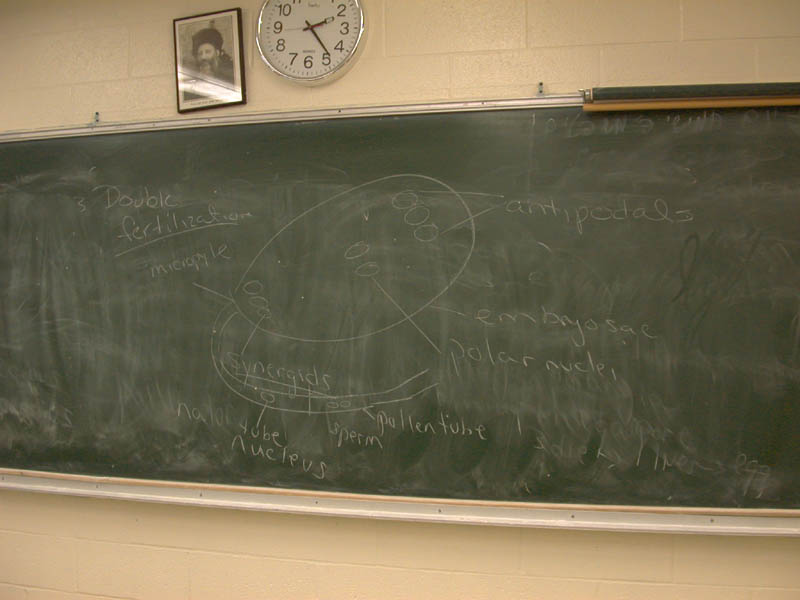 10
2
9
3
8
4
7
6
5
Double
fertilization
micropyle
antipodals
embryosac
polar nuclei
synergids
pollen tube
sperm
tube
nucleus